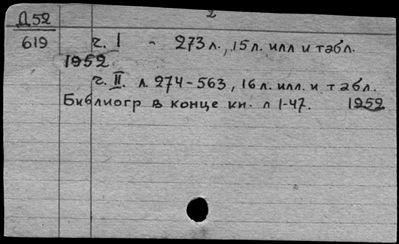 2
Д 52
619
ч. I - 273 л., 15 л. илл и табл.
1952
ч. II. л. 274-563, 16 л. илл. и табл.
Библиогр в конце кн. л 1-47. 1952